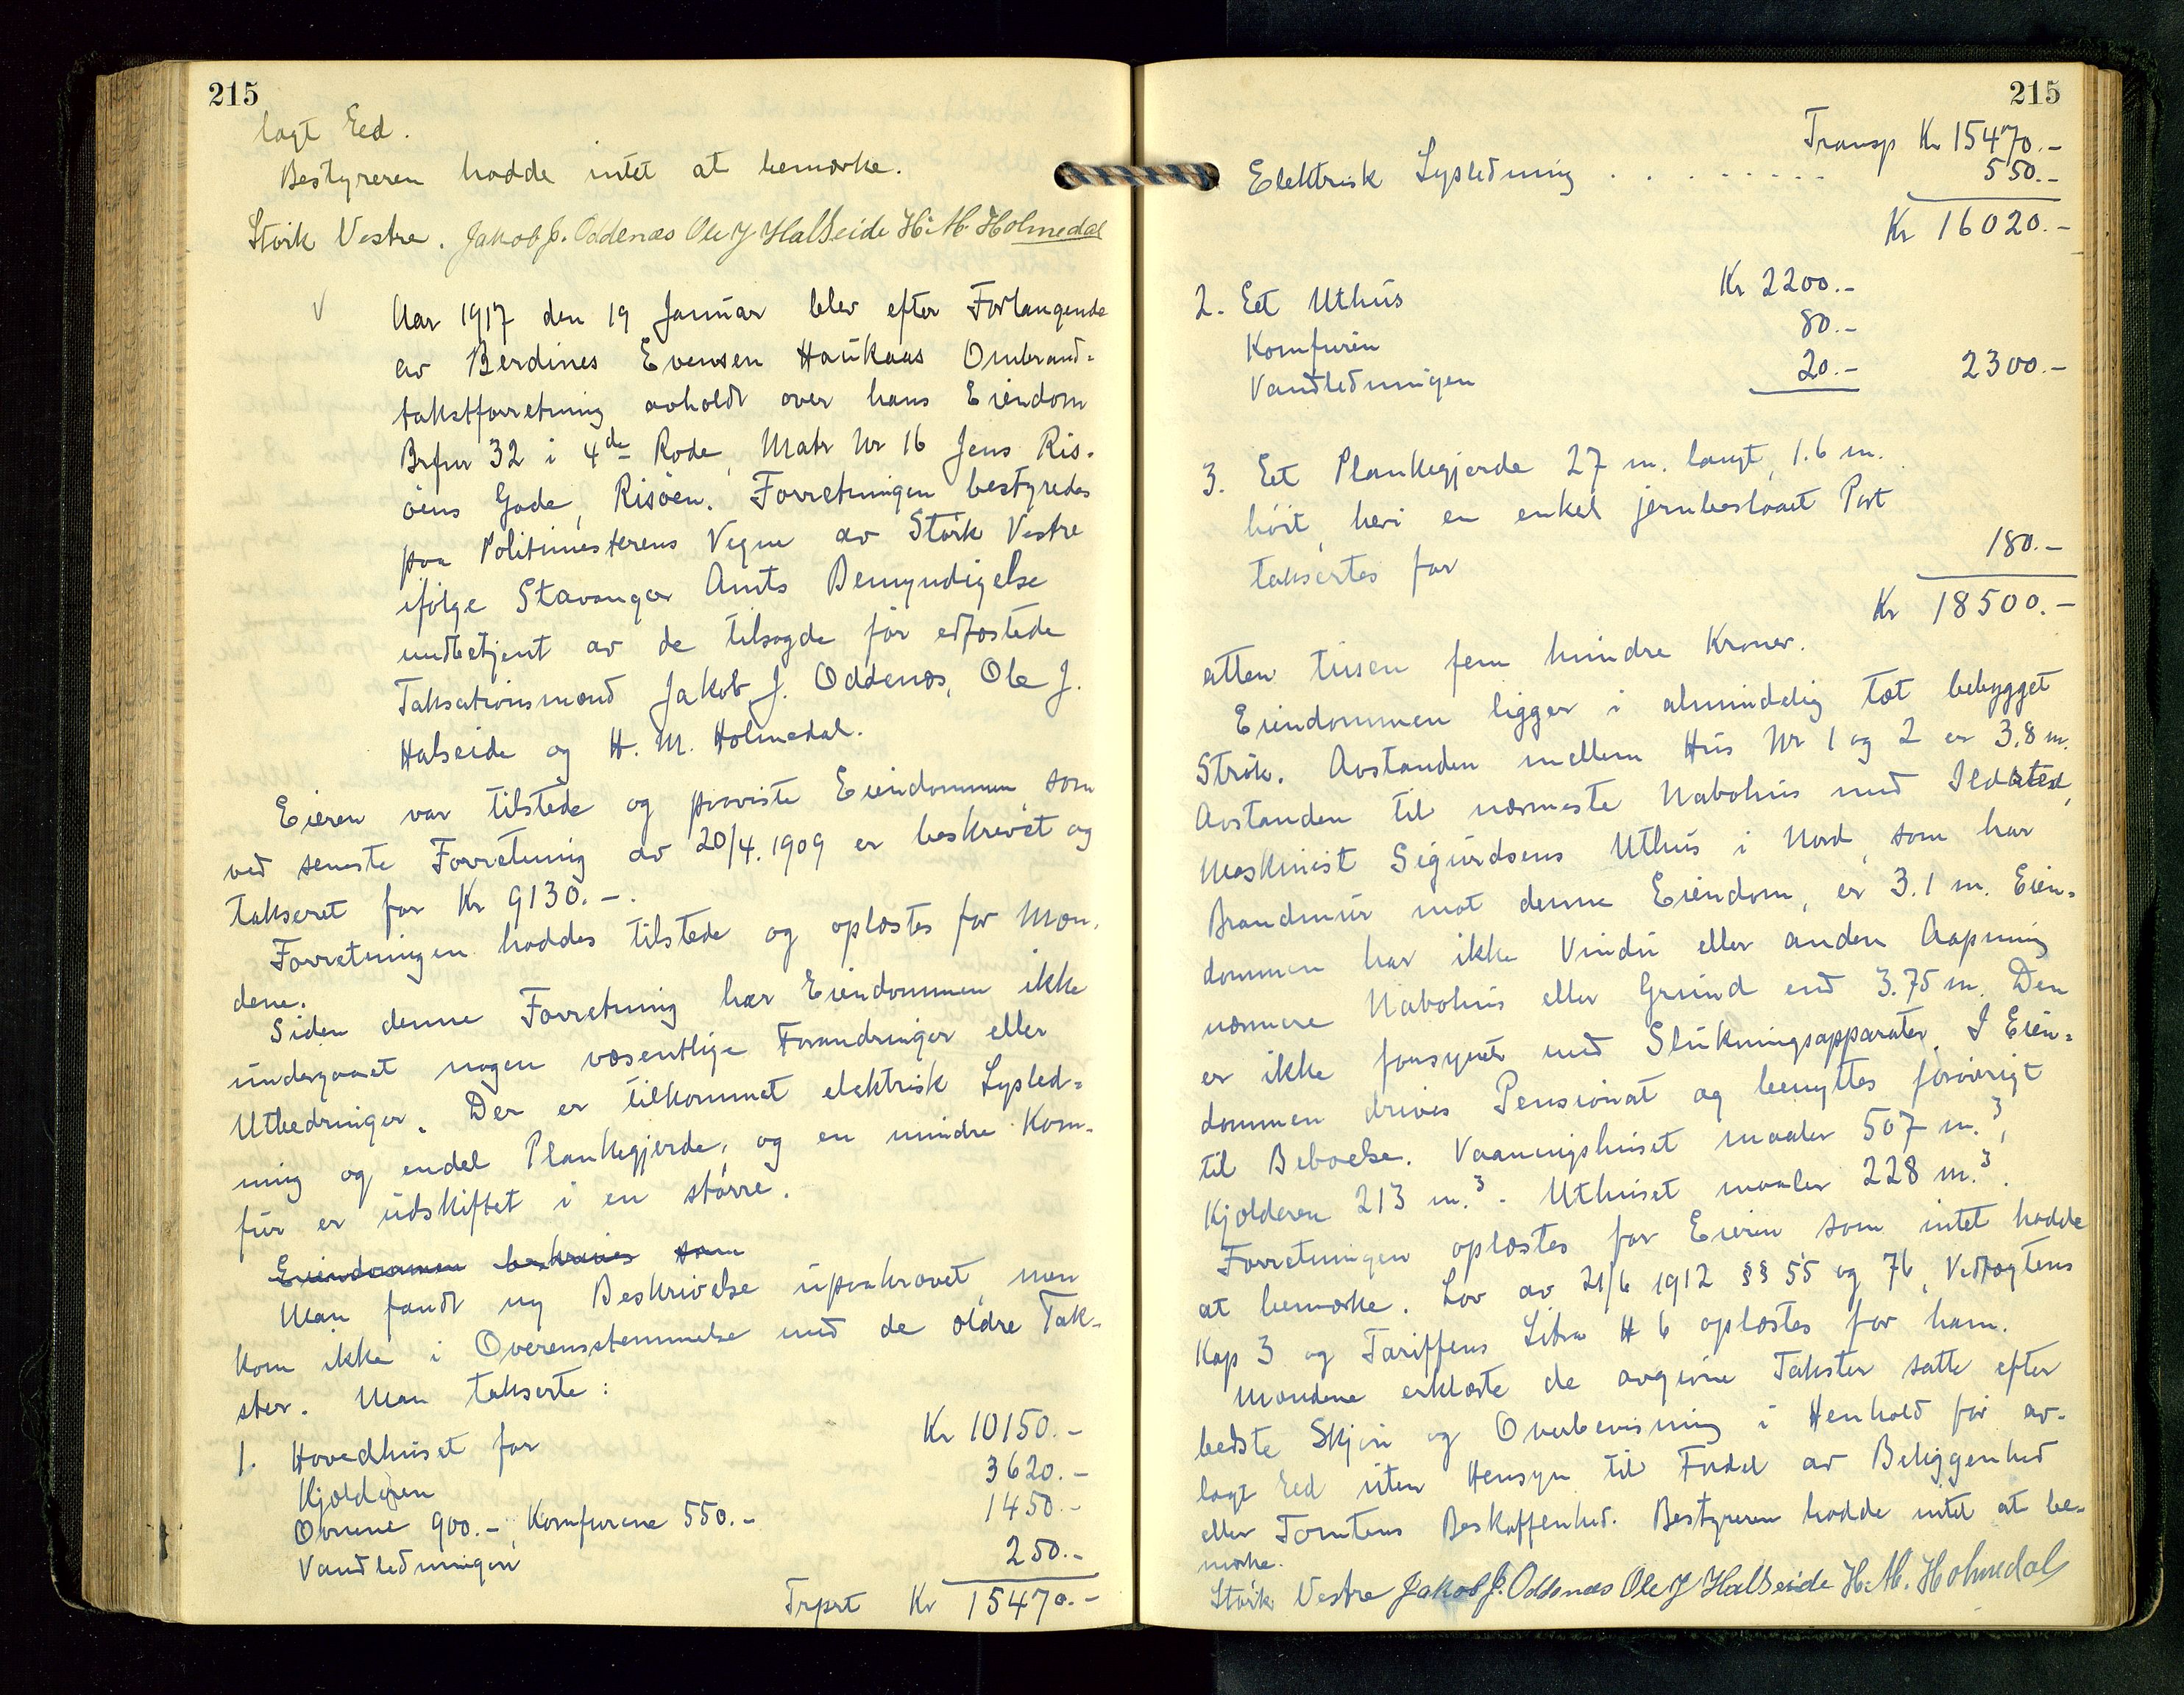 215
lagt Eed.
Bestyreren hadde intet at bemærke.
Størk Vestre. Jakob J. Oddenæs Ole J Halseide H. M. Holmedal
√ Aar 1917 den 19 Januar blev efter Forlangende
av Berdines Evensen Haukaas Ombrand-
takstforretning avholdt over hans Eiendom
Brfnr 32 i 4de Rode, Matr Nr 16 Jens Ris-
øens Gade, Risøen. Forretningen bestyredes
paa Politimesterens Vegne av Størk Vestre
ifølge Stavanger Amts Bemyndigelse
medbetjent av de tilsagde før edfæstede
Taksationsmænd Jakob J. Oddenæs, Ole J.
Halseide og H. M. Holmedal.
Eieren var tilstede og paaviste Eiendommen, som
ved seneste Forretning av 20/4. 1909 er beskrevet og
takseret for Kr 9130.-.
Forretningen haddes tilstede og oplæstes for Mæn-
dene.
Siden denne Forretning har Eiendommen ikke
undergaaet nogen væsentlige Forandringer eller
Utbedringer. Der er tilkommet elektrisk Lysled-
ning og endel Plankegjerde, og en mindre Kom-
fur er udskiftet i en større.
Eiendommen beskrives som
Man fandt ny Beskrivelse upaakrævet, men
kom ikke i Overensstemmelse med de ældre Tak-
ster. Man takserte:
1. Hovedhuset for Kr 10150.-
Kjælderen 3620.-
Ovnene 900.-, Komfurene 550.- 1450.-
Vandledningen 250.-
Trprt Kr 15470.-
215
Transp Kr 15470.-
Elektrisk Lysledning . . . . . . . . 550.-
Kr 16020.-
2. Eet Uthus Kr 2200.-
Komfuren 80.-
Vandledningen 20.- 2300.-
3. Eet Plankegjerde 27 m. langt, 1.6 m.
høit, heri en enkel jernbeslaaet Port
takseres for 180.-
Kr 18500.-
atten tusen fem hundre Kroner.
Eiendommen ligger i almindelig tæt bebygget
Strøk. Avstanden mellem Hus Nr 1 og 2 er 3.8 m.
Avstanden til nærmeste Nabohus med Ildsted,
Maskinist Sigurdsens Uthus i Nord, som har
Brandmur mot denne Eiendom, er 3.1 m. Eien-
dommen har ikke Vindu eller anden Aapning
nærmere Nabohus eller Grund end 3.75 m. Den
er ikke forsynet med Slukningsapparater. I Eien-
dommen drives Pensionat og benyttes forøvrigt
til Beboelse. Vaaningshuset maaler 507 m.³,
Kjælderen 213 m.³. Uthuset maaler 228 m.³.
Forretningen oplæstes for Eieren som intet hadde
at bemærke. Lov av 21/6 1912 §§ 55 og 76, Vedtægtens
Kap 3 og Tariffens Litra H 6 oplæstes for ham.
Mændene erklærte de avgivne Takster satte efter
bedste Skjøn og Overbevisning i Henhold før av-
lagt Eed uten Hensyn til Fordel av Beliggenhed
eller Tomtens Beskaffenhed. Bestyreren hadde intet at be-
mærke.
Størk Vestre Jakob J. Oddenæs Ole J Halseide H. M. Holmedal